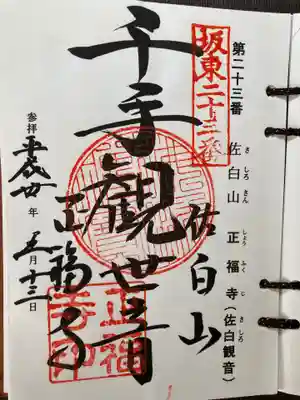 第二十三番 佐白山 正福寺(佐白観音)
さ しろ さん しょう ふく じ さ しろ
坂東二十三番
佐白山
千手觀世音
正福寺
正福寺印
参拝 平成 年 月十三日